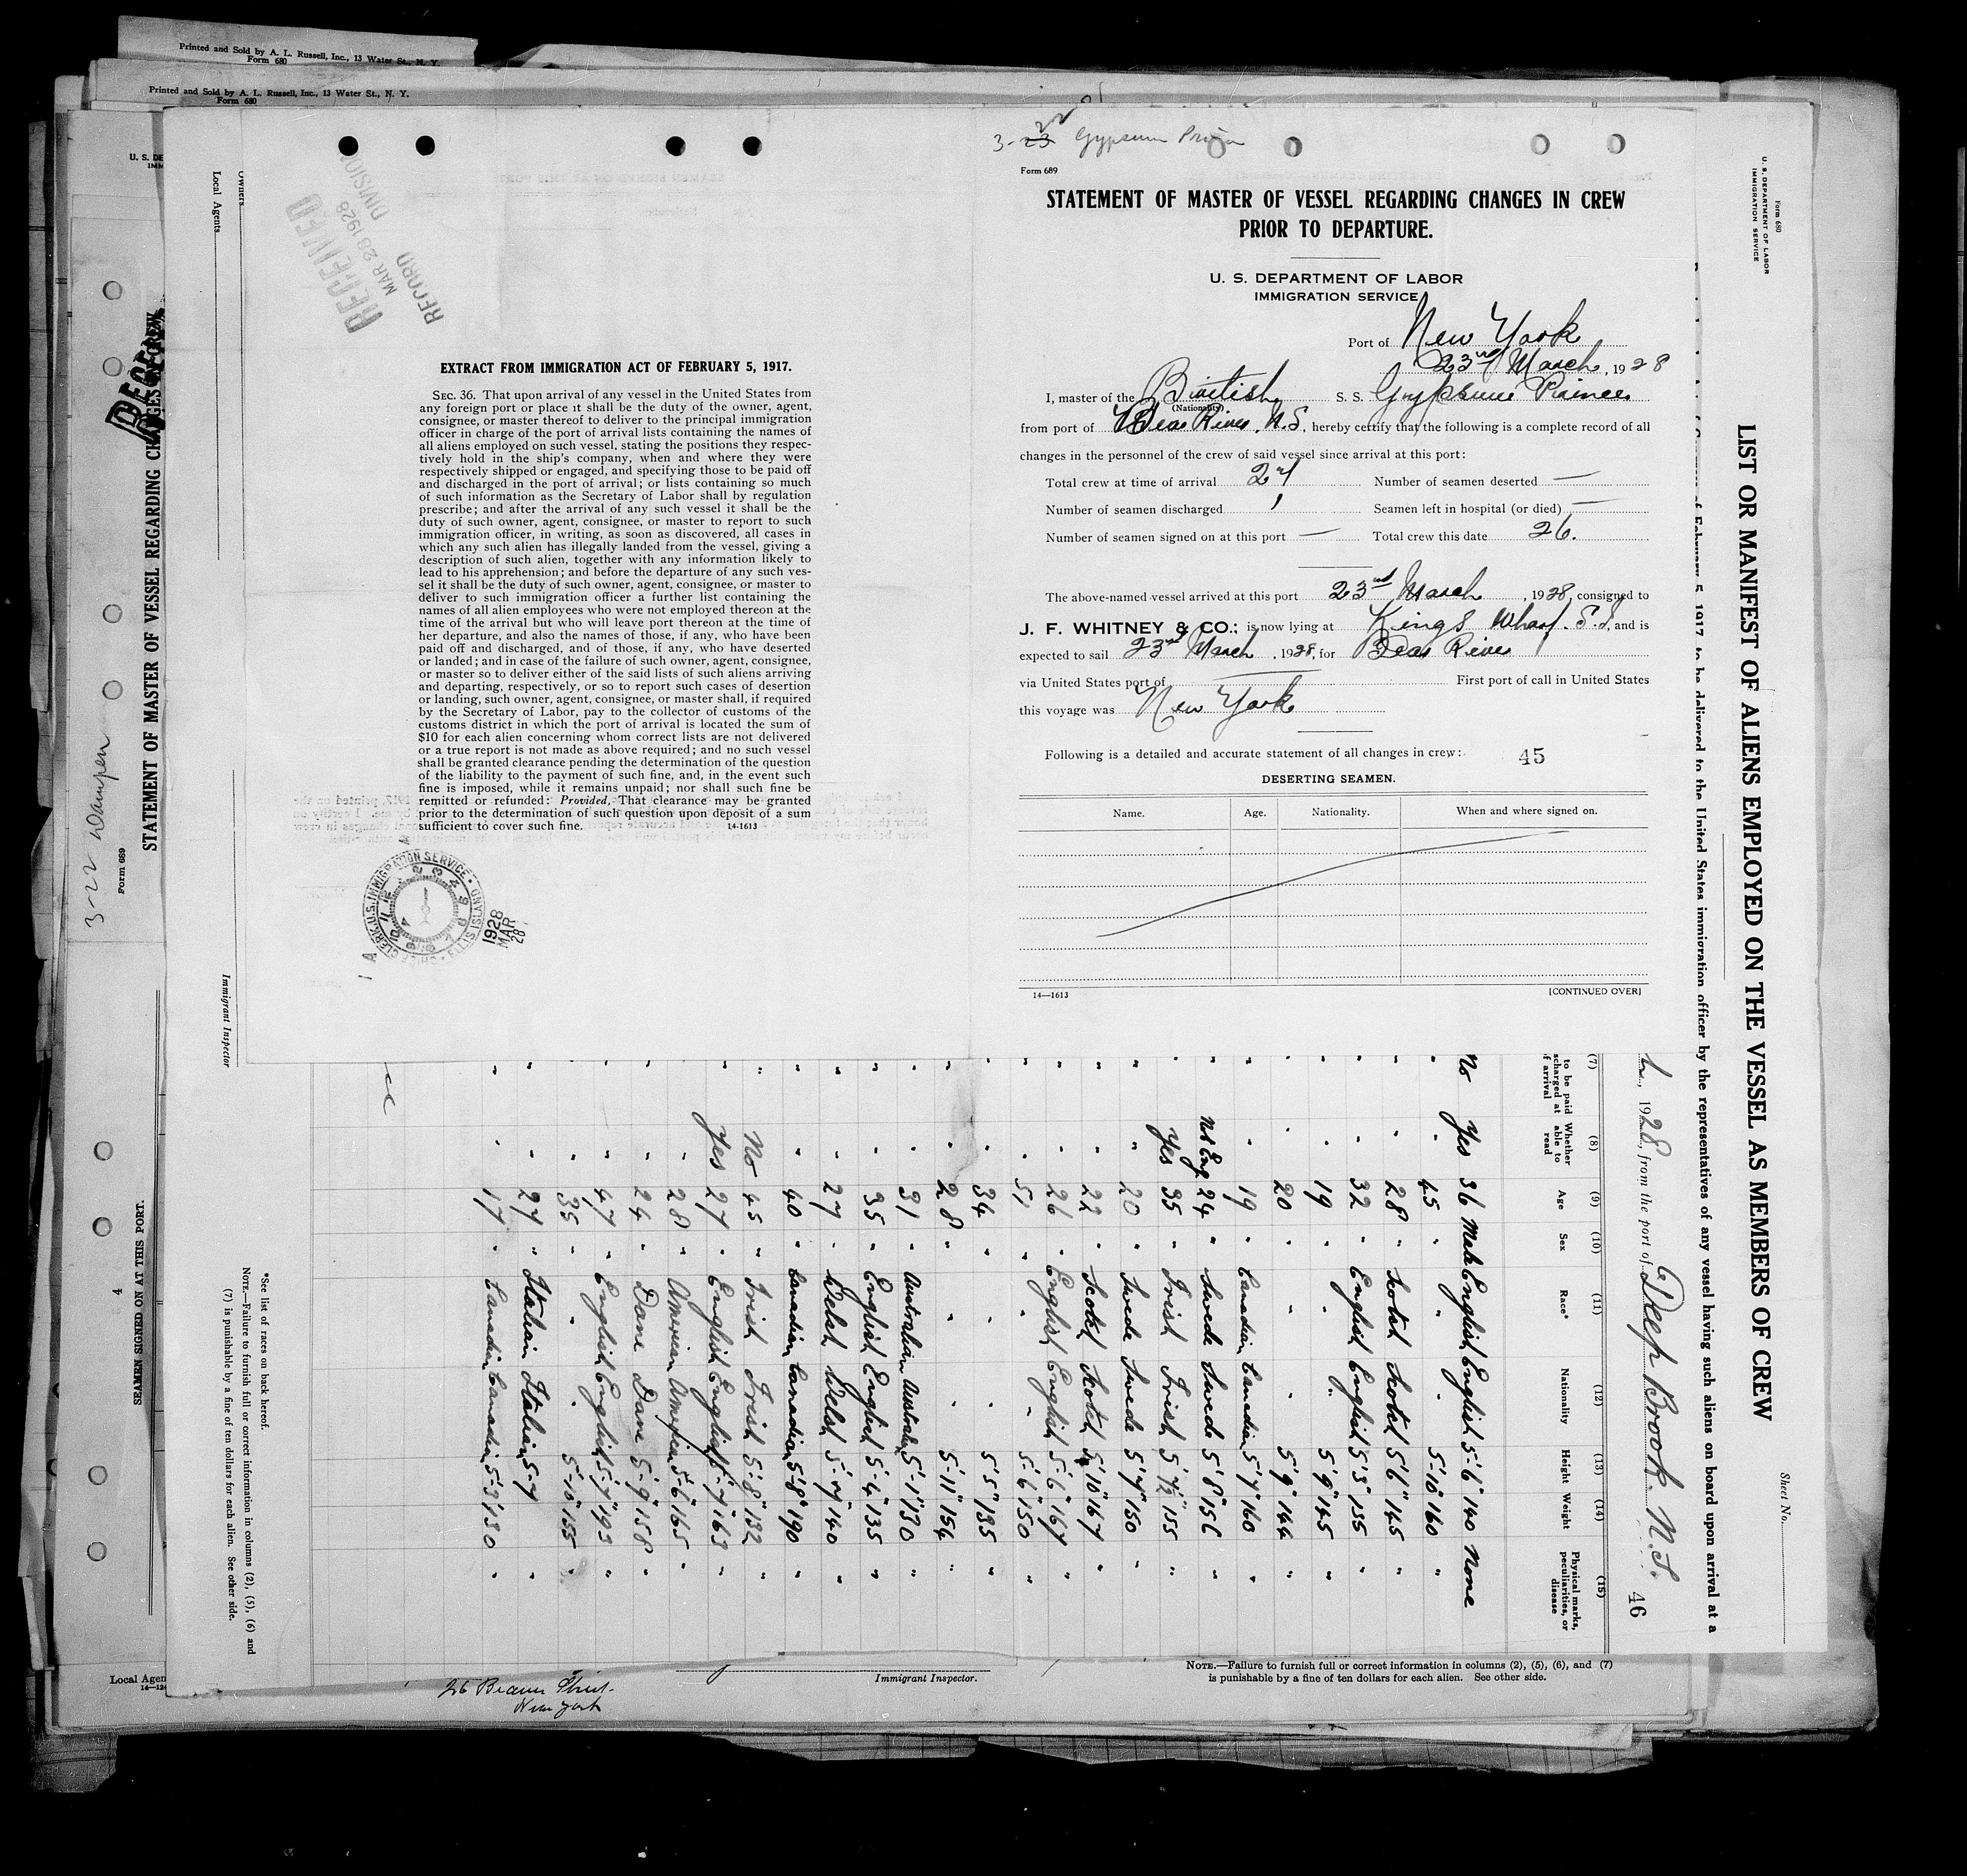 Printed and Sold by A. L. Russell, Inc., 13 Water St., N. Y.
Form 680
Printed and Sold by A. L. Russell, Inc., 13 Water St., N. Y.
Form 680
U. S. DE
IMM
Local Agents
Owners
Immigrant Inspector
RECEIVED
MAR 28 1928
RECORD DIVISION
EXTRACT FROM IMMIGRATION ACT OF FEBRUARY 5, 1917.
SEC. 36. That upon arrival of any vessel in the United States from
any foreign port or place it shall be the duty of the owner, agent,
consignee, or master thereof to deliver to the principal immigration
officer in charge of the port of arrival lists containing the names of
all aliens employed on such vessel, stating the positions they respec-
tively hold in the ship's company, when and where they were
respectively shipped or engaged, and specifying those to be paid off
and discharged in the port of arrival; or lists containing so much
of such information as the Secretary of Labor shall by regulation
prescribe; and after the arrival of any such vessel it shall be the
duty of such owner, agent, consignee, or master to report to such
immigration officer, in writing, as soon as discovered, all cases in
which any such alien has illegally landed from the vessel, giving a
description of such alien, together with any information likely to
lead to his apprehension; and before the departure of any such ves-
sel it shall be the duty of such owner, agent, consignee, or master to
deliver to such immigration officer a further list containing the
names of all alien employees who were not employed thereon at the
time of the arrival but who will leave port thereon at the time of
her departure, and also the names of those, if any, who have been
paid off and discharged, and of those, if any, who have deserted
or landed; and in case of the failure of such owner, agent, consignee,
or master so to deliver either of the said lists of such aliens arriving
and departing, respectively, or so to report such cases of desertion
or landing, such owner, agent, consignee, or master shall, if required
by the Secretary of Labor, pay to the collector of customs of the
customs district in which the port of arrival is located the sum of
$10 for each alien concerning whom correct lists are not delivered
or a true report is not made as above required; and no such vessel
shall be granted clearance pending the determination of the question
of the liability to the payment of such fine, and, in the event such
fine is imposed, while it remains unpaid; nor shall such fine be
remitted or refunded: Provided, That clearance may be granted
prior to the determination of such question upon deposit of a sum
sufficient to cover such fine. 14-1613
CHIEF CLERK U.S. IMMIGRATION SERVICE • ELLIS ISLAND
1928
MAR
28
3-23 22 Gypsum Prince
Form 689
STATEMENT OF MASTER OF VESSEL REGARDING CHANGES IN CREW
PRIOR TO DEPARTURE.
U. S. DEPARTMENT OF LABOR
IMMIGRATION SERVICE
Port of New York
23rd March, 1928
I, master of the British S. S. Gypsum Prince
(Nationality)
from port of Bear River, N.S, hereby certify that the following is a complete record of all
changes in the personnel of the crew of said vessel since arrival at this port:
Total crew at time of arrival 27 Number of seamen deserted —
Number of seamen discharged 1 Seamen left in hospital (or died) —
Number of seamen signed on at this port — Total crew this date 26.
The above-named vessel arrived at this port 23rd March, 1928, consigned to
J. F. WHITNEY & CO.; is now lying at Kings Wharf. S.I, and is
expected to sail 23rd March, 1928, for Bear River
via United States port of — First port of call in United States
this voyage was New York
Following is a detailed and accurate statement of all changes in crew:
45
DESERTING SEAMEN.
Name. Age. Nationality. When and where signed on.
14—1613 [CONTINUED OVER]
Form 680
U. S. DEPARTMENT OF LABOR
IMMIGRATION SERVICE
Sheet No.
LIST OR MANIFEST OF ALIENS EMPLOYED ON THE VESSEL AS MEMBERS OF CREW
of February 5, 1917 to be delivered to the United States immigration officer by the representatives of any vessel having such aliens on board upon arrival at a
, 1928, from the port of Deep Brook. N.S.
46
(7) (8) (9) (10) (11) (12) (13) (14) (15)
to be paid
scharged at
of arrival
Whether
able to
read
Age
Sex
Race*
Nationality
Height
Weight
Physical marks,
peculiarities, or
disease
No Yes 36 Male English English 5-6" 140 None
" " 45 " " " 5-10" 160 "
" " 28 " Scotch Scotch 5'6" 145 "
" " 32 " English English 5'3" 135 "
" " 19 " " " 5'9" 145 "
" " 20 " " " 5'9" 144 "
" " 19 " Canadian Canadian 5'7" 160 "
" 24 " Swede Swede 5'8" 156 "
" Yes 35 " Irish Irish 5'7½" 155 "
" " 20 " Swede Swede 5'7" 150 "
" " 22 " Scotch Scotch 5'10" 167 "
" " 26 " English English 5-6" 167 "
" " 51 " " " 5-6" 150 "
" " 34 " " " 5'5" 135 "
" " 28 " " " 5'11" 154 "
" " 31 " Australian Australian 5-1" 130 "
" " 35 " English English 5-4" 135 "
" " 27 " Welsh Welsh 5-7" 140 "
" " 40 " Canadian Canadian 5-8" 190 "
" No 45 " Irish Irish 5-8" 132 "
" Yes 27 " English English 5-7" 163 "
" " 28 " American American 5-6" 165 "
" " 24 " Dane Dane 5-9" 158 "
" " 47 " English English 5-7" 193 "
" " 35 " " " 5-10" 155 "
" " 27 " Italian Italian 5-7 "
" " 17 " Canadian Canadian 5-3" 130 "
*See list of races on back hereof.
NOTE.—Failure to furnish full or correct information in columns (2), (5), (6) and
(7) is punishable by a fine of ten dollars for each alien. See other side.
3-22
Form 689
STATEMENT OF MASTER OF VESSEL REGARDING CHANGES IN CREW
SEAMEN SIGNED ON AT THIS PORT.
4
Local Agen
26 Beaver Street.
New York
Immigrant Inspector.
NOTE.—Failure to furnish full or correct information in columns (2), (5), (6), and (7)
is punishable by a fine of ten dollars for each alien. See other side.